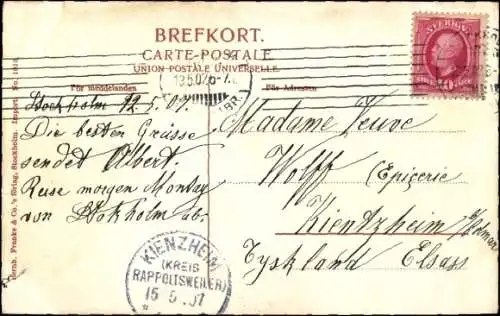 BREFKORT.
CARTE-POSTALE
UNION POSTALE UNIVERSELLE
För meddelanden
För Adressen
SVERIGE
10
13.5.07.6-7
Stockholm 12.5.07.
Die besten Grüsse
sendet Albert.
Reise morgen Montag
von Stokholm ab.
Madame Veuve
Wolff (Epicerie
Kientzheim b/Colmar
Tyskland Elsass
KIENZHEIM
(KREIS
RAPPOLTSWEILER)
15 5 07
Bernh. Franke & Co.'s förlag, Stockholm. Import. No.